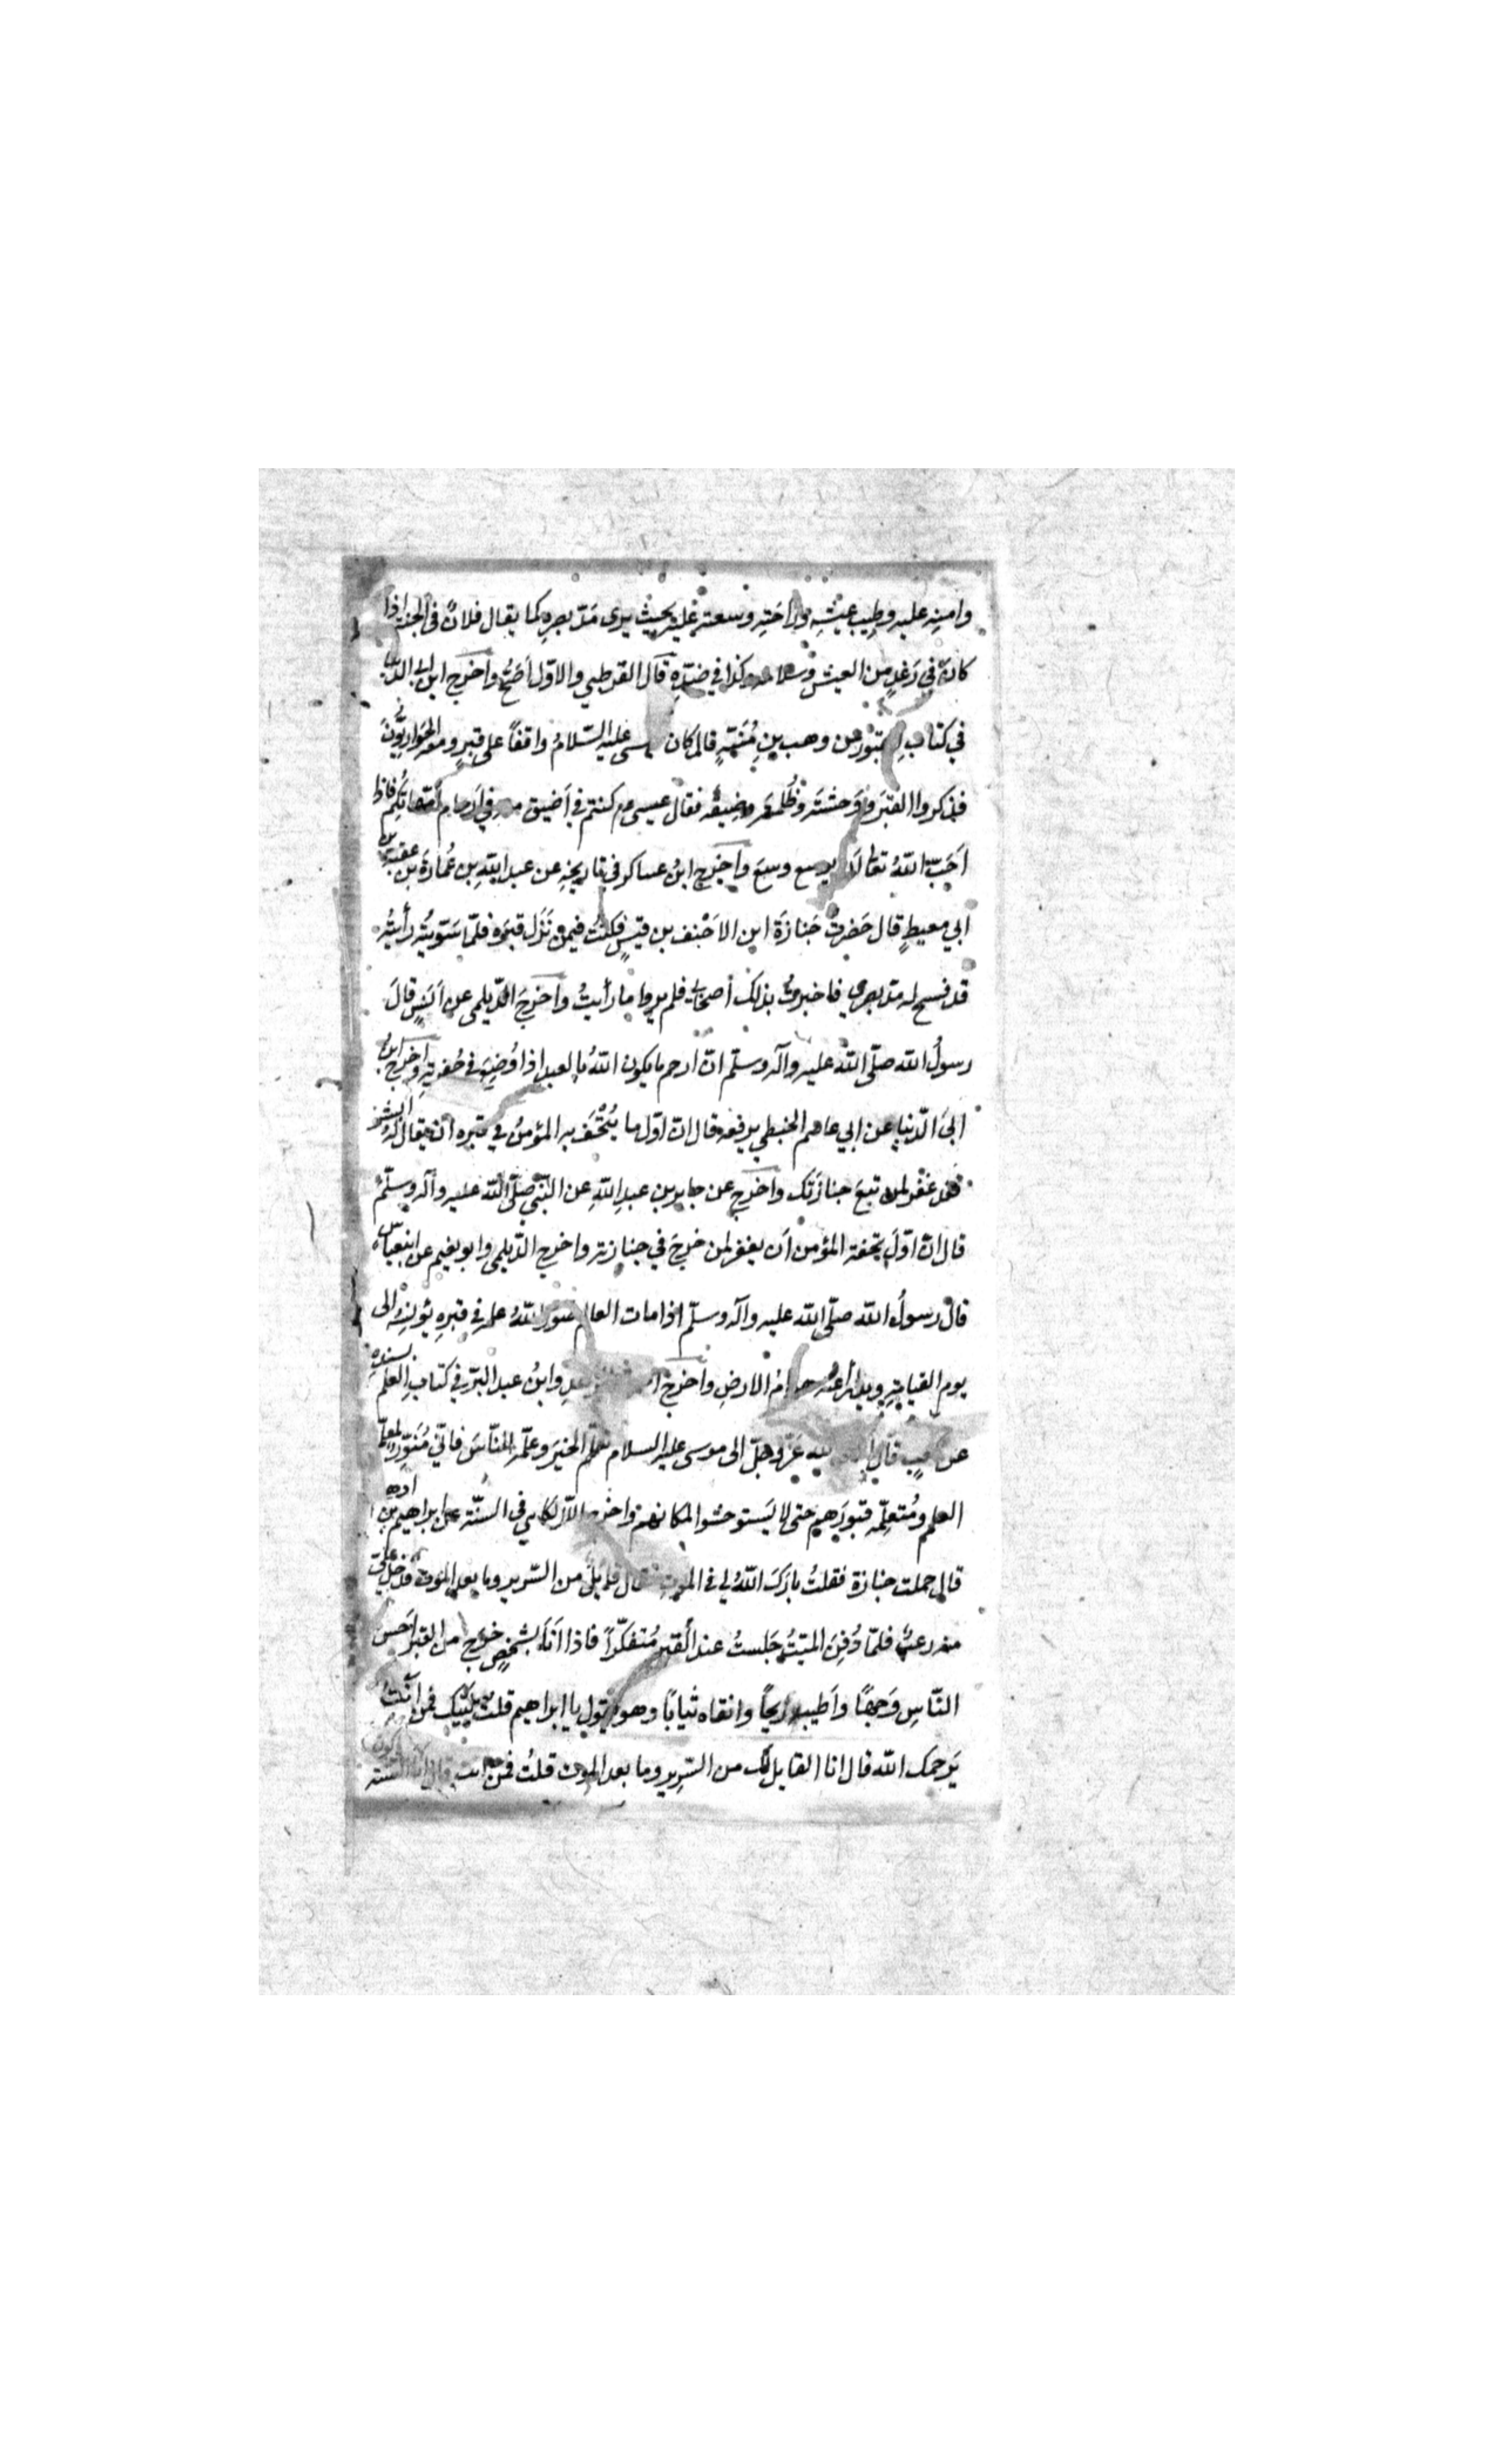 وامنِه عليه وطِيب عيشِه وراحَتِه وسعته عليه بحيث يرى مَدّ بصره كما يقال فلانٌ فى الجنة اذا
كان في رَغَدٍ من العيش وسلامة وكذا في ضدّه قال القرطبي والاوّل أصَحُّ واخرج ابن ابى الدنيا
في كتاب القبور عن وهب بن مُنَبّهٍ قال كان عيسى عليه السّلامُ واقفاً على قبرٍ ومعه الحَوارِيّونَ
فذكروا القبرَ ووَحشتَه وظُلمتَه وضيقَه فقال عيسى كنتم في أضيق منه في أرحام أمّهاتكم فاذا
أحَبّ اللهُ تعالى أن يوسع وسعَ واخرج ابنُ عساكر فى تاريخِه عن عبد اللهِ بن عُمارَة بن عقبة بن
ابي معيطٍ قال حَضرتُ جَنازَةَ ابن الاحْنف بن قيسٍ فكنتُ فيمن نَزَلَ قبرَه فلمّا سَوّيتُه رأيتُه
قد فسح له مدّ بصرى فاخبرتُ بذلك أصحابى فلم يروا ما رأيتُ واخرجَ الدّيلمى عن أنسٍ قالَ
رسولُ الله صلّى اللهُ عليه وآله وسلّم انّ ارحم ما يكون اللهُ بالعبد اذا وُضِعَ في حُفرتِه واخرج ابنُ
ابى الدّنيا عن ابي عاصم الحبطي يرفعه قال انّ اوّل ما يُتْحَف به المؤمنُ في قبره ان يقال له ابشر
فقد غفر لمن تبعَ جنازتك واخرج عن جابر بن عبدِ اللهِ عن النّبي صلّى الله عليه وآله وسلّم
قال انّ اوّلَ تحفة المؤمن أن يغفر لمن خرجَ في جنازته واخرج الدّيلمى وابو نعيم عن ابن عباس
قال رسولُ الله صلّى الله عليه وآله وسلّم اذا مات العالم صوّر اللهُ علمه في قبرِه يُونِسُه الى
يوم القيامةِ ويدرأ عنه هوامّ الارضِ واخرج فى الزهدِ وابنُ عبد البرّ في كتاب العلم بسنده
عن كعبٍ قال الله عزّ وجلّ الى موسى عليه السلام تعلّم الخيرَ وعلّمه النّاسَ فانّي مُنَوّرٌ لمعلّم
العلم ومُتعلّمِه قبورَهم حتى لا يَستوحشوا لمكانهم واخرج اللالكايى فى السنّة عن ابراهيم بن ادهم
قال حملت جنازة فقلتُ بارَكَ اللهُ لى فى الموت فقال قايلٌ من السّرير وما بعد الموت فدخل علىّ
منه رعبٌ فلمّا دُفِنَ الميّتُ جَلستُ عند القبرِ مُتفكّراً فاذا أنا بشخصٍ خرج من القبر احسن
النّاسِ وَجهًا وأطيبه ريحًا وانقاه ثيابًا وهو يقول يا ابراهيم قلت لبّيك فمن أنتَ
يَرحمك الله قال انا القايل لك من السّرير وما بعد الموت قلتُ فمن انت قال انا السّنّة